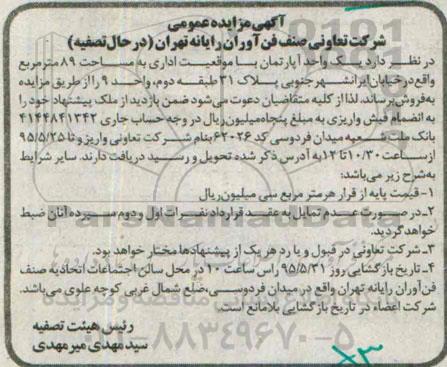 آگهی مزایده عمومی
شرکت تعاونی صنف فن آوران رایانه تهران (در حال تصفیه)
در نظر دارد یک واحد آپارتمان با موقعیت اداری به مساحت ۸۹ مترمربع
واقع در خیابان ایرانشهر جنوبی پلاک ۳۱ طبقه دوم، واحد ۹ را از طریق مزایده
به فروش برساند. لذا از کلیه متقاضیان دعوت می‌شود ضمن بازدید از ملک پیشنهاد خود را
به انضمام فیش واریزی به مبلغ پنجاه میلیون ریال در وجه حساب جاری ۴۱۴۴۸۴۱۳۴۲
بانک ملت شعبه میدان فردوسی کد ۶۲۰۲۶ بنام شرکت تعاونی واریز و تا ۹۵/۵/۲۵
از ساعت ۱۰/۳۰ تا ۱۲ به آدرس ذکر شده تحویل و رسید دریافت دارند. سایر شرایط
به شرح زیر می‌باشد:
۱- قیمت پایه از قرار هر متر مربع سی میلیون ریال
۲- در صورت عدم تمایل به عقد قرارداد نفرات اول و دوم سپرده آنان ضبط
خواهد گردید.
۳- شرکت تعاونی در قبول و یا رد هر یک از پیشنهادها مختار خواهد بود.
۴- تاریخ بازگشایی روز ۹۵/۵/۳۱ راس ساعت ۱۰ در محل سالن اجتماعات اتحادیه صنف
فن آوران رایانه تهران واقع در میدان فردوسی، ضلع شمال غربی کوچه علوی می‌باشد.
شرکت اعضاء در تاریخ بازگشایی بلامانع است.
رئیس هیئت تصفیه
سید مهدی میرمهدی
ParsNamadData
۸۸۳۴۹۶۷۰-۵
×۳